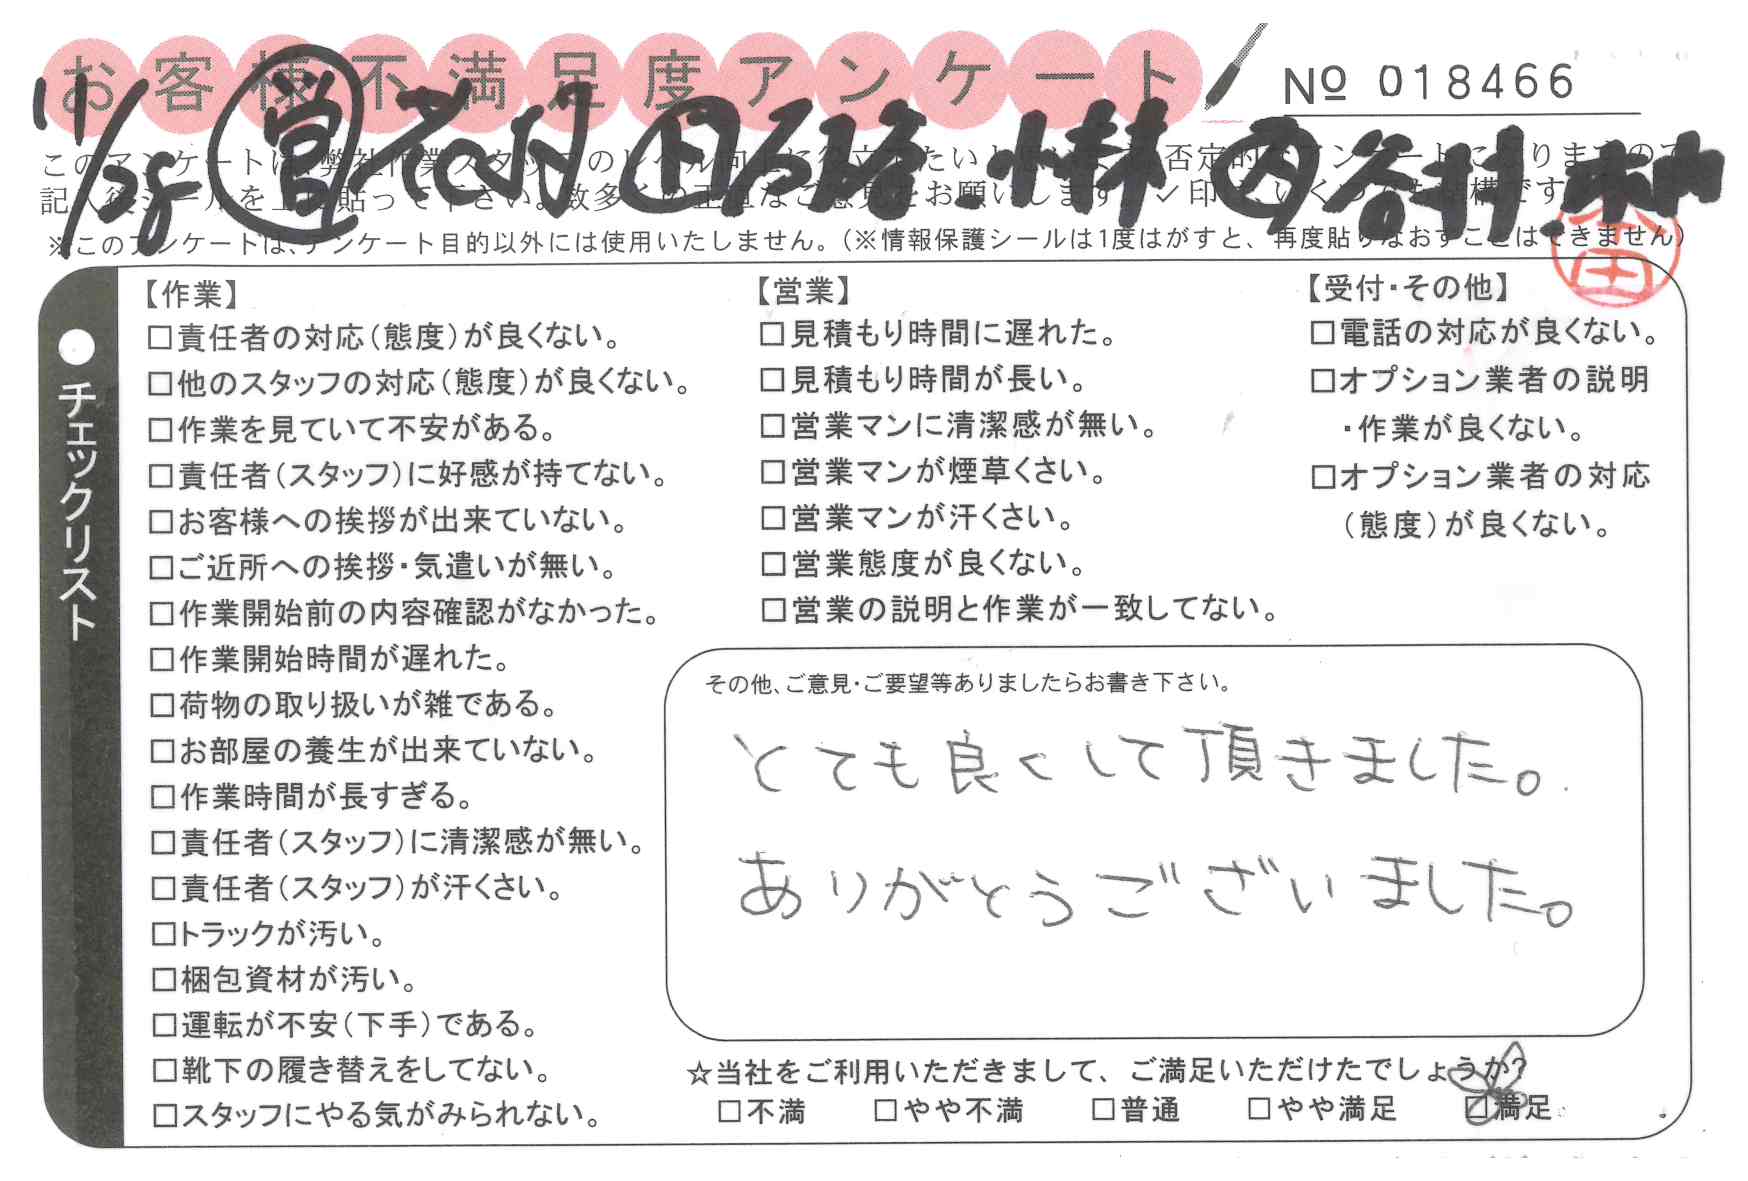 お客様不満足度アンケート
No 018466
11/28 営 花村 石路 小林 内 谷村
※このアンケートは、アンケート目的以外には使用いたしません。(※情報保護シールは1度はがすと、再度貼りなおすことはできません)
本田
●チェックリスト
【作業】
□責任者の対応(態度)が良くない。
□他のスタッフの対応(態度)が良くない。
□作業を見ていて不安がある。
□責任者(スタッフ)に好感が持てない。
□お客様への挨拶が出来ていない。
□ご近所への挨拶・気遣いが無い。
□作業開始前の内容確認がなかった。
□作業開始時間が遅れた。
□荷物の取り扱いが雑である。
□お部屋の養生が出来ていない。
□作業時間が長すぎる。
□責任者(スタッフ)に清潔感が無い。
□責任者(スタッフ)が汗くさい。
□トラックが汚い。
□梱包資材が汚い。
□運転が不安(下手)である。
□靴下の履き替えをしてない。
□スタッフにやる気がみられない。
【営業】
□見積もり時間に遅れた。
□見積もり時間が長い。
□営業マンに清潔感が無い。
□営業マンが煙草くさい。
□営業マンが汗くさい。
□営業態度が良くない。
□営業の説明と作業が一致してない。
【受付・その他】
□電話の対応が良くない。
□オプション業者の説明
・作業が良くない。
□オプション業者の対応
(態度)が良くない。
その他、ご意見・ご要望等ありましたらお書き下さい。
とても良くして頂きました。
ありがとうございました。
☆当社をご利用いただきまして、ご満足いただけたでしょうか?
□不満 □やや不満 □普通 □やや満足 □満足